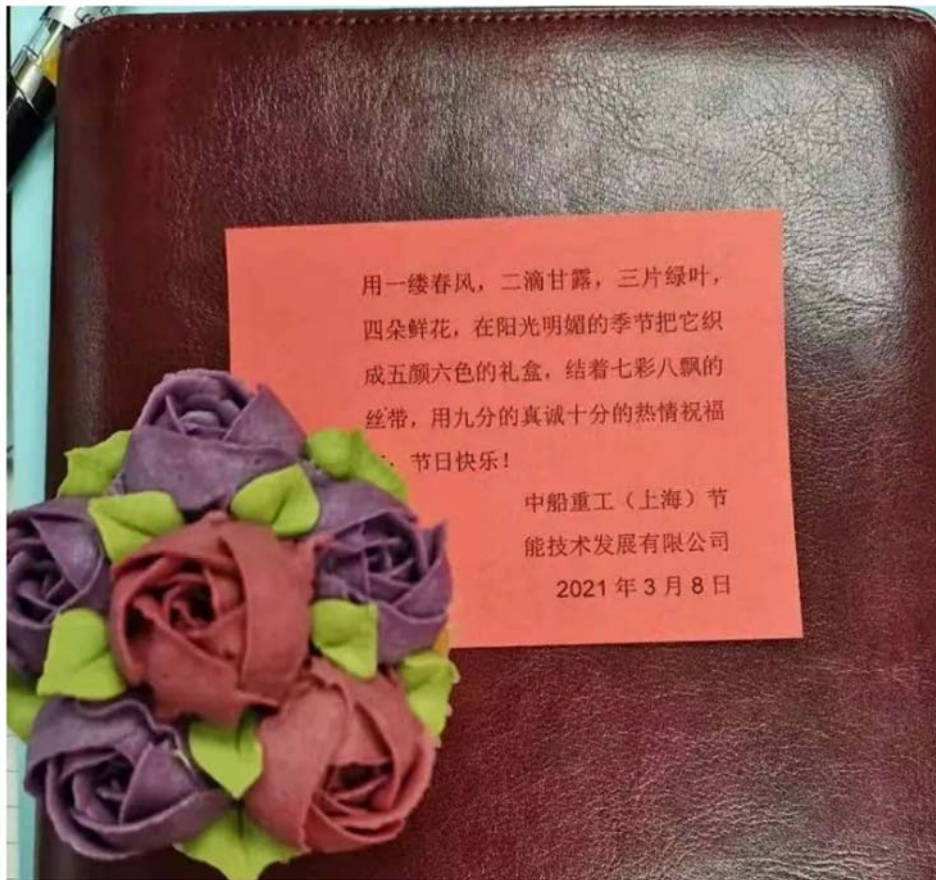 用一缕春风，二滴甘露，三片绿叶，
四朵鲜花，在阳光明媚的季节把它织
成五颜六色的礼盒，结着七彩八飘的
丝带，用九分的真诚十分的热情祝福
节日快乐！
中船重工（上海）节
能技术发展有限公司
2021年3月8日